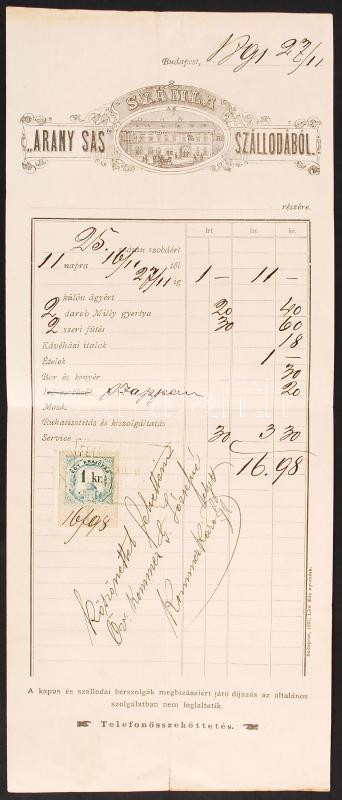 Budapest, 1891 27/11
SZÁMLA
AZ
„ARANY SAS” SZÁLLODÁBÓL
részére.
frt frt kr.
25. számu szobáért
11 napra 16/11 től
27/11 ig 1 — 11 —
külön ágyért
2 darab Milly gyertya 20 40
2 szeri fűtés 30 60
Kávéházi italok 18
Ételek 1 —
Bor és kenyér 30
20
Mosás
Ruhatisztitás és kiszolgáltatás
Service 30 3 30
16.98
1 kr.
16/98
Köszönettel felvettem
Öv. Kommer
Kommer
Budapest, 1891.
A kapus és szállodai bérszolgák megbizásaiért járó dijazás az általános
szolgálatban nem foglaltatik.
Telefonösszeköttetés.